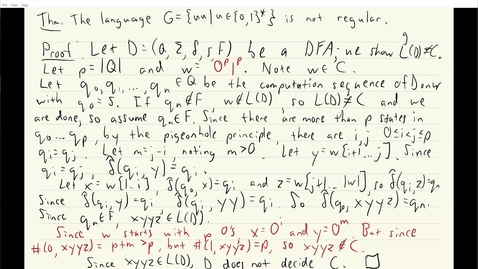 Thm. The language G={uu|u∈{0,1}*} is not regular.
Proof Let D=(Q,Σ,δ,s,F) be a DFA; we show L(D)≠C. G
Let p=|Q| and w= 0ᵖ1ᵖ. Note w∈C.
Let q₀,q₁,...,qₙ∈Q be the computation sequence of D on w
with q₀=s. If qₙ∉F, w∉L(D), so L(D)≠C and we
are done, so assume qₙ∈F. Since there are more than p states in
q₀...qₚ, by the pigeonhole principle, there are i,j 0≤i<j≤p
qᵢ=qⱼ. Let m=j-i, noting m>0. Let y=w[i+1...j]. Since
qᵢ=qⱼ, δ̂(qᵢ,y)=qᵢ.
Let x=w[1..i], δ̂(q₀,x)=qᵢ and z=w[j+1...|w|], so δ̂(qᵢ,z)=qₙ
Since δ̂(qᵢ,y)=qᵢ δ̂(qᵢ,yy)=qᵢ. So δ̂(q₀,xyyz)=qₙ.
Since qₙ∈F, xyyz∈L(D).
Since w starts with p 0's, x=0ⁱ and y=0ᵐ. But since
#(0,xyyz)=p+m>p, but #(1,xyyz)=p, so xyyz∉C.
Since xyyz∈L(D), D does not decide C. □